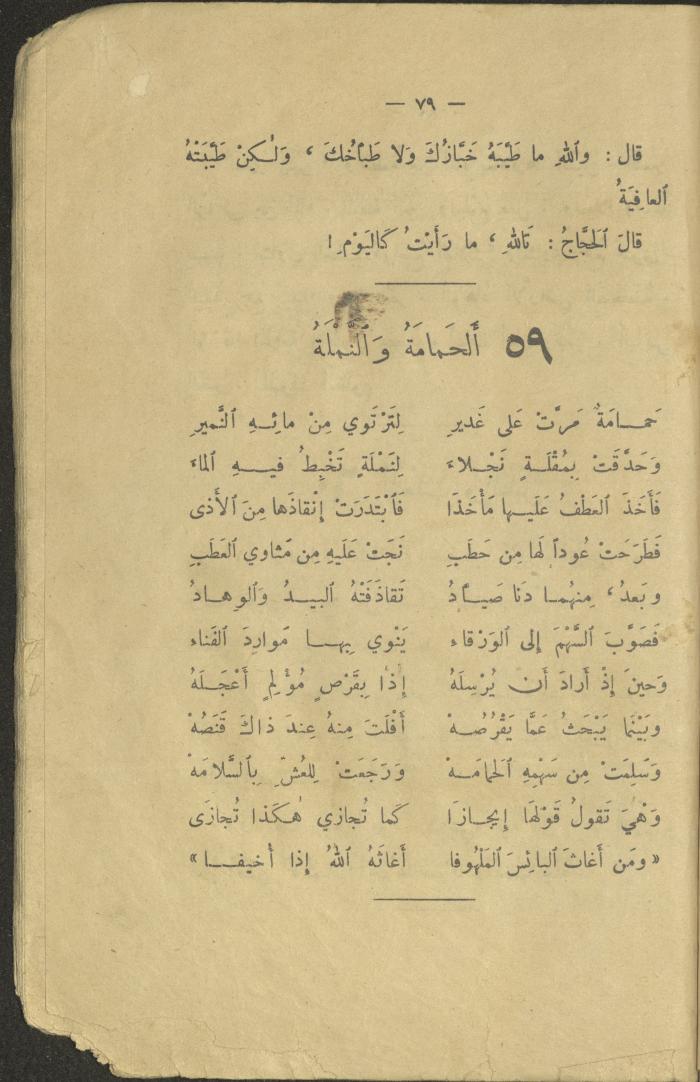 — ٧٩ —
قال : وٱللهِ ما طَيَّبَهُ خَبَّازُكَ وَلا طَبَّاخُكَ ، وَلٰكِنْ طَيَّبَتْهُ
ٱلعافِيَةُ
قالَ ٱلحَجَّاجُ : تَاللهِ ، ما رَأَيْتُ كَاليَوْمِ !
٥٩ أَلحَمامَةُ وَٱلنَّمْلَةُ
حَمـامَةٌ مَرَّتْ عَلى غَديرِ لِتَرْتَوي مِنْ مائِـهِ ٱلنَّميرِ
وَحَدَّقَتْ بِمُقْلَـةٍ نَجْـلاءَ لِنَمْلَةٍ تَخْبِطُ فيـهِ ٱلماءَ
فَأَخَذَ ٱلعَطْفُ عَلَيـها مَأْخَذَا فَٱبْتَدَرَتْ إِنْقاذَها مِنَ ٱلأَذى
فَطَرَحَتْ عُوداً لَها مِن حَطَبِ نَجَتْ عَلَيهِ مِن مَثاوي ٱلعَطَبِ
وبَعدُ ، مِنهُمـا دَنَا صَيـَّادُ تَقاذَفَتْهُ ٱلبيـدُ وَٱلوِهـادُ
فَصَوَّبَ ٱلسَّهْمَ إِلى ٱلوَرْقاءِ يَنْوي بِهـا مَوارِدَ ٱلفَناءِ
وَحينَ إِذْ أَرادَ أَن يُرْسِلَهُ إِذا بِقَرْصٍ مُؤْلِمٍ أَعْجَـلَهُ
وبَيْنَما يَبْحَثُ عَمَّا يَقْرُصُـهْ أَفْلَتَ مِنهُ عِندَ ذاكَ قَنَصُهْ
وَسَلِمَتْ مِن سَهْمِهِ ٱلحَمامَـهْ وَرَجَعَتْ لِلعُشِّ بِٱلسَّلامَهْ
وَهْيَ تَقولُ قَوْلَها إِيجـازَا كَما تُجازي هٰكَذا تُجازَى
« ومَن أَغاثَ ٱلبائِسَ ٱلمَلْهُوفا أَغاثَهُ ٱللهُ إِذا أُخيفـا »